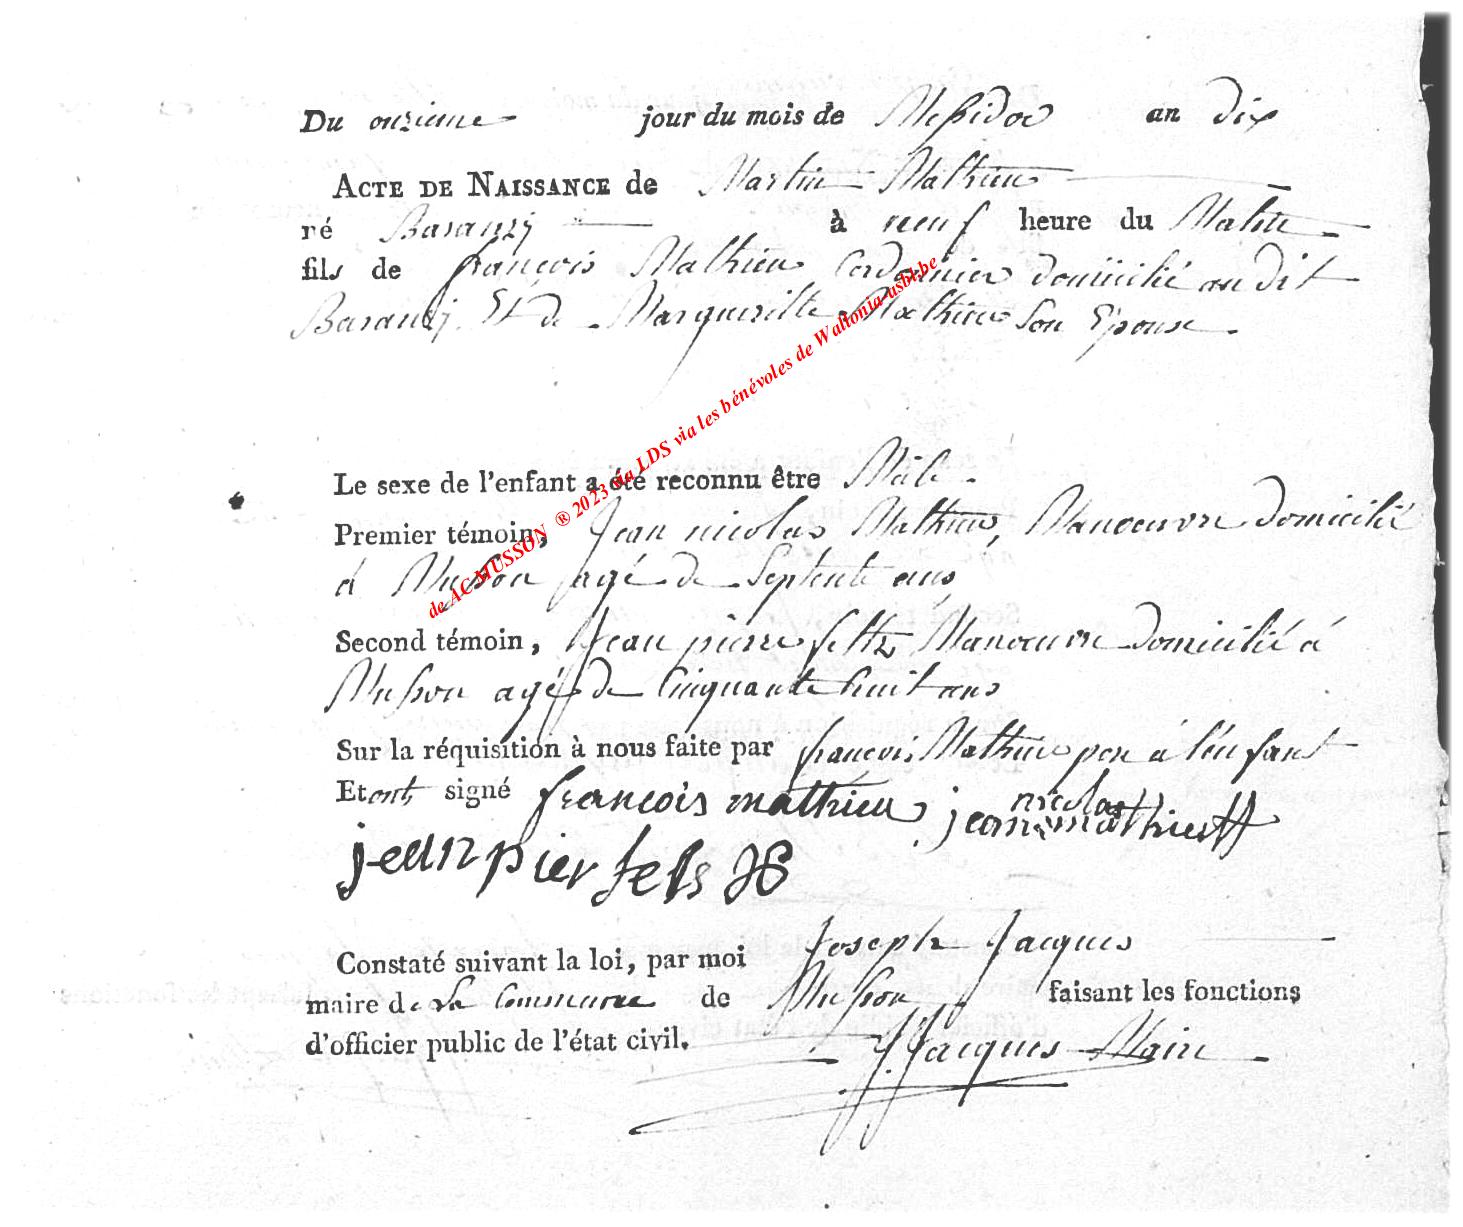 Du onzieme jour du mois de Messidor an dix
ACTE DE NAISSANCE de Martin Mathieu
né Baranzÿ à neuf heure du Matin
fils de françois Mathieu Cordonnier domicilié au dit
Baranzÿ Et de Margueritte Mathieu Son Epouse
Le sexe de l'enfant a été reconnu être Mâle
Premier témoin, Jean nicolas Mathieu, Manoeuvre domicilié
à Musson agé de Septente ans
Second témoin, Jean pierre feltz Manoeuvre domicilié à
Musson agé de Cinquante huit ans
Sur la réquisition à nous faite par françois Mathieu per a l'enfant
Et ont signé francois mathieu jean nicolas mathieu
jean pier fels
Constaté suivant la loi, par moi Joseph Jacques
maire de La Commune de Musson faisant les fonctions
d'officier public de l'état civil. J Jacques Maire
de AC MUSSON ® 2023 via LDS via les bénévoles de Waltonia-asbl.be